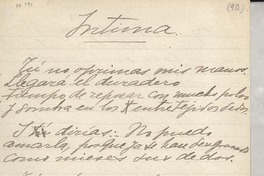 M 191
(90)
Intima.
Tú no oprimas mis manos.
Llegará el duradero
tiempo de reposar con mucho polvo
y sombra en los entretejidos dedos.
I dirías: No puedo
amarla, porque ya se han desgranado
como mieses sus dedos.